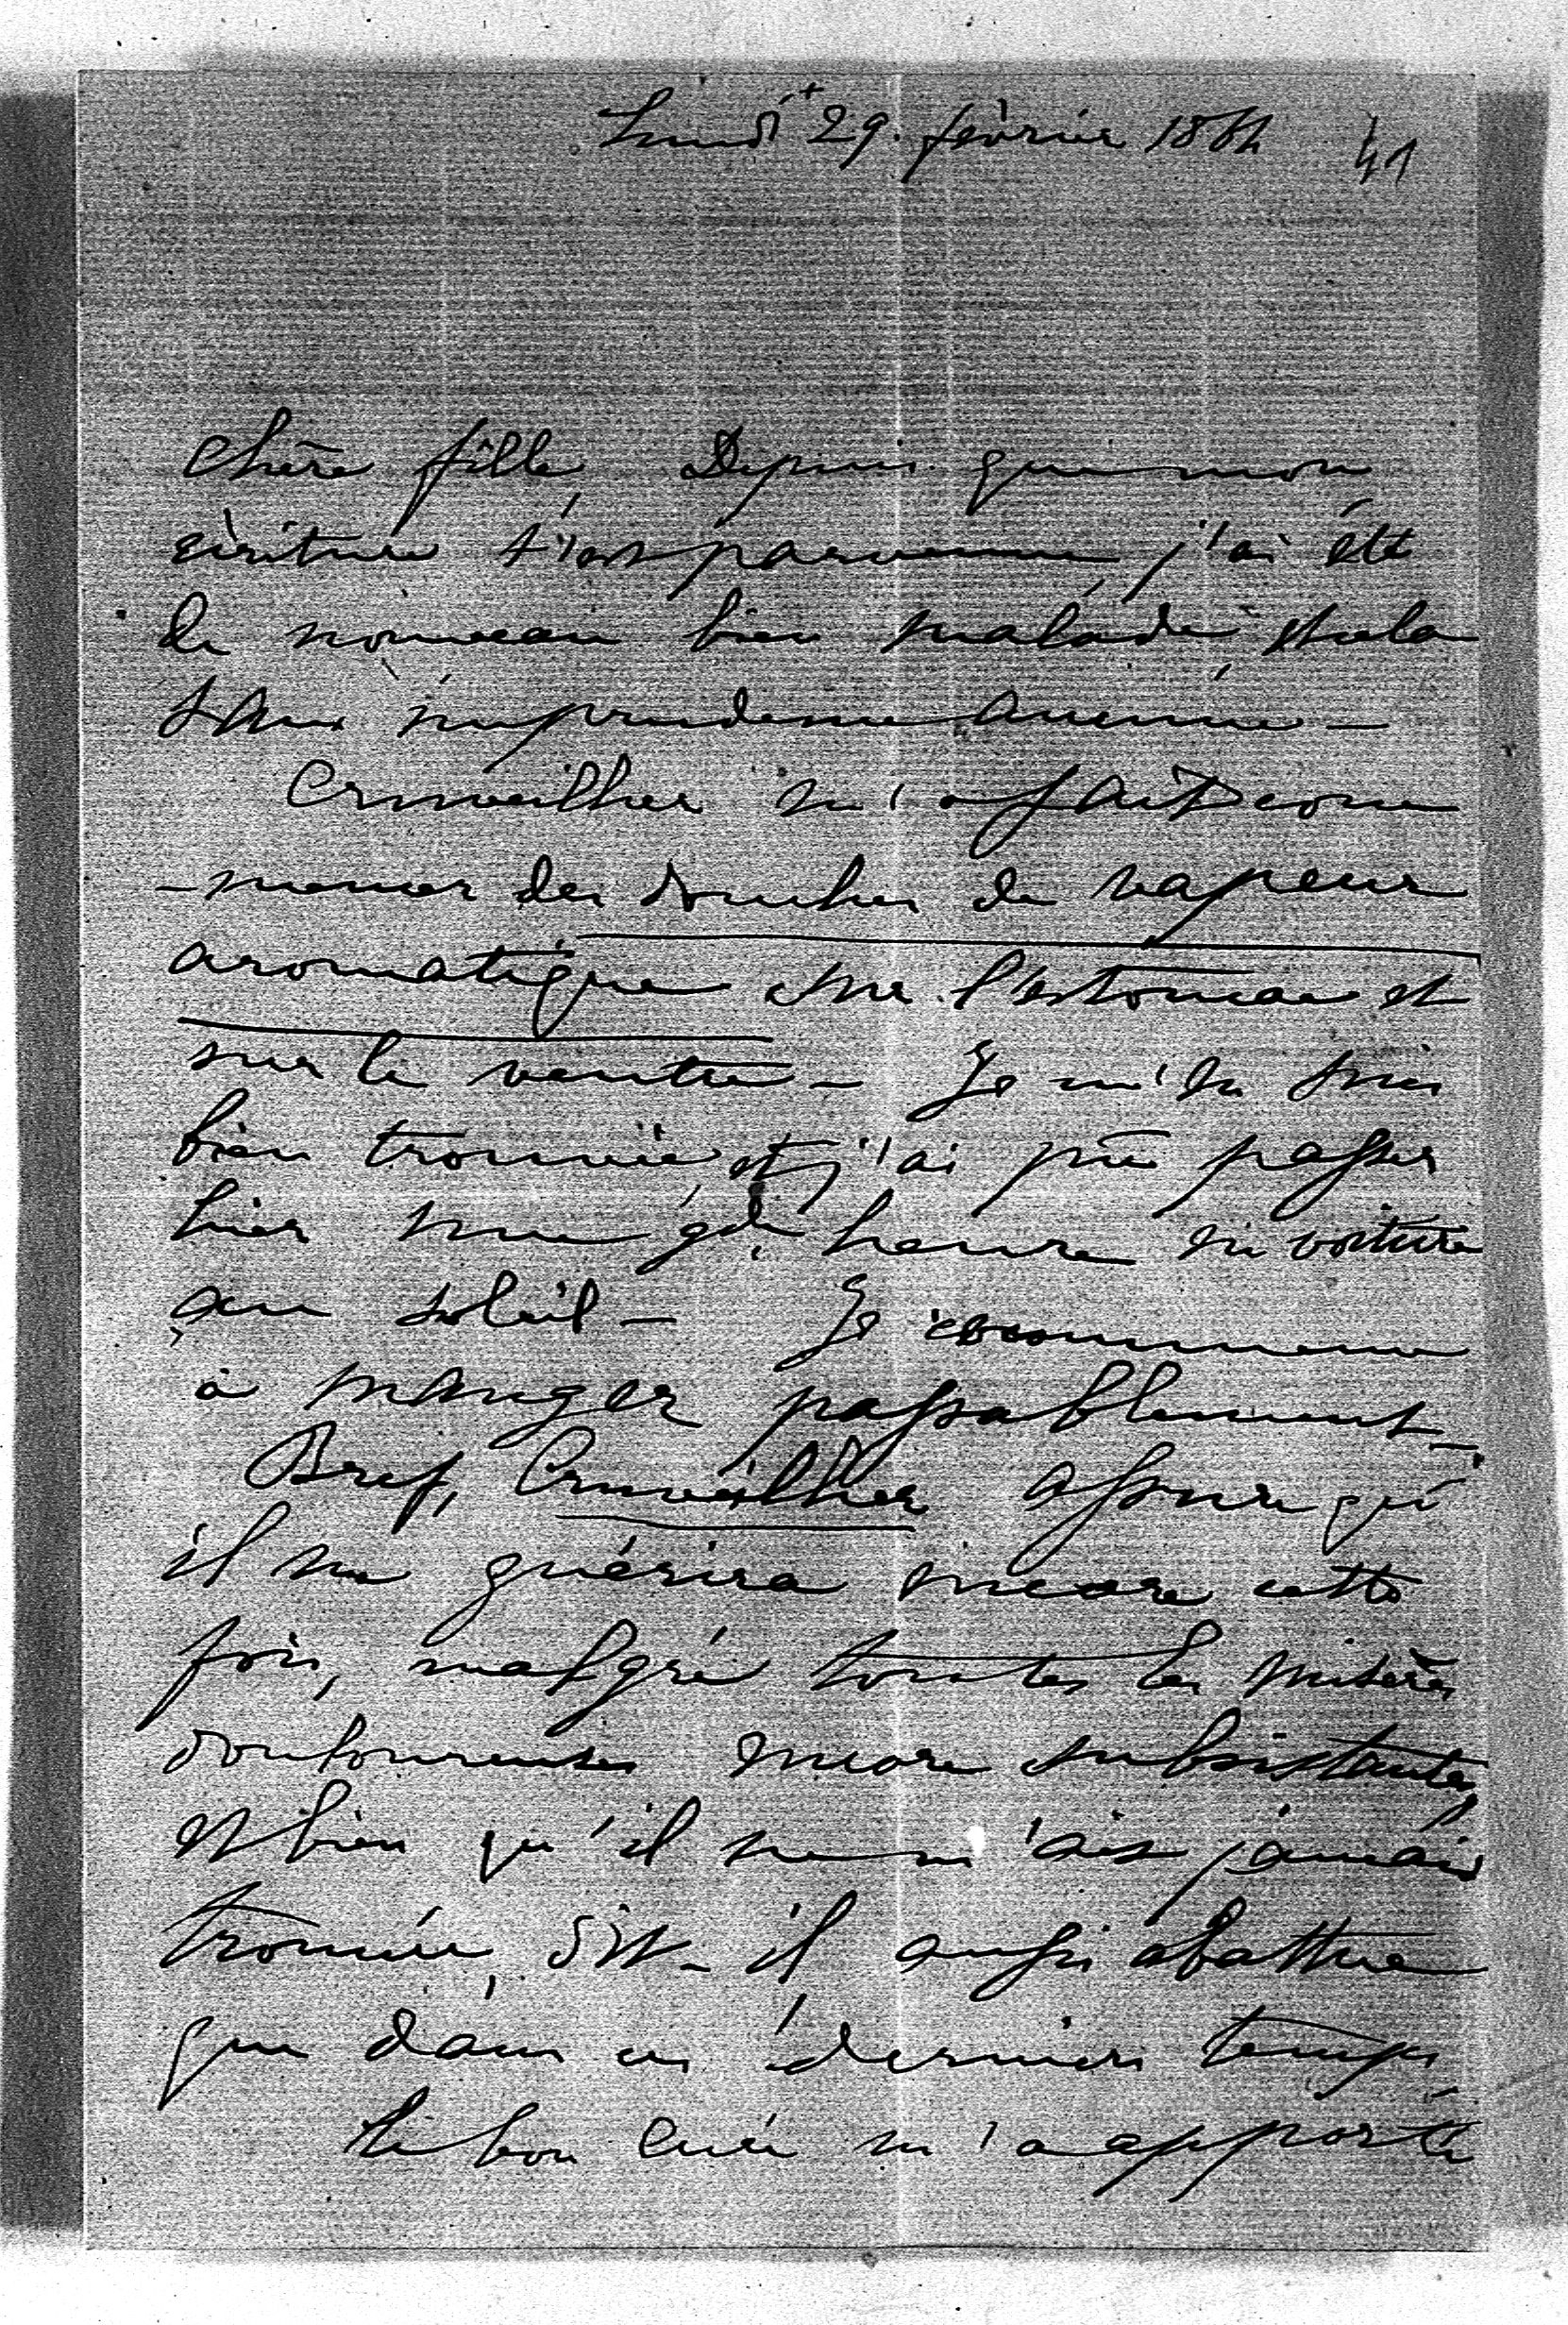 Lundi 29. février 1864 41
Chère fille, Depuis que mon
écriture t'est parvenue, j'ai été
de nouveau bien malade, et cela
sans imprudence aucune –
Cruveilher m'a fait com
-mencer des douches de vapeur
aromatique sur l'estomac et
sur le ventre – Je m'en suis
bien trouvée, et j'ai pu passer
hier une gde heure en voiture
au soleil – Je recommence
à manger passablement –
Bref, Cruveilher assure qu'
il me guérira encore cette
fois, malgré toutes les misères
douloureuses encore subsistantes,
et bien qu'il ne m'ait jamais
trouvée, dit-il aussi abattue
que dans ces derniers temps
Le bon Curé m'a apporté